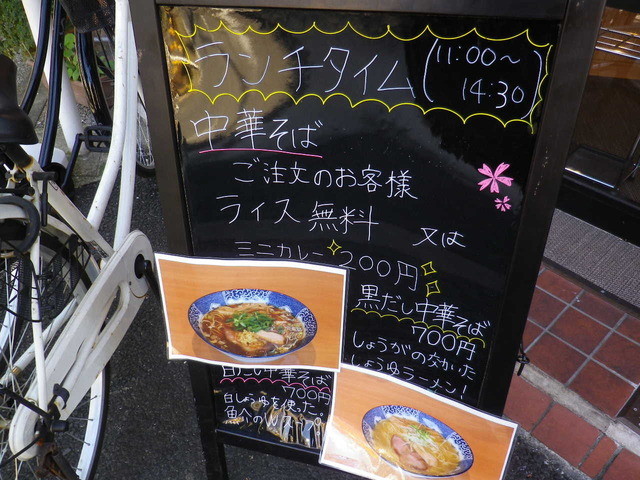 ランチタイム(11:00～14:30)
中華そば
ご注文のお客様
ライス無料 又は
ミニカレー200円
黒だし中華そば
700円
しょうがのきいた
しょうゆラーメン!
白だし中華そば
700円
白しょうゆを使った。